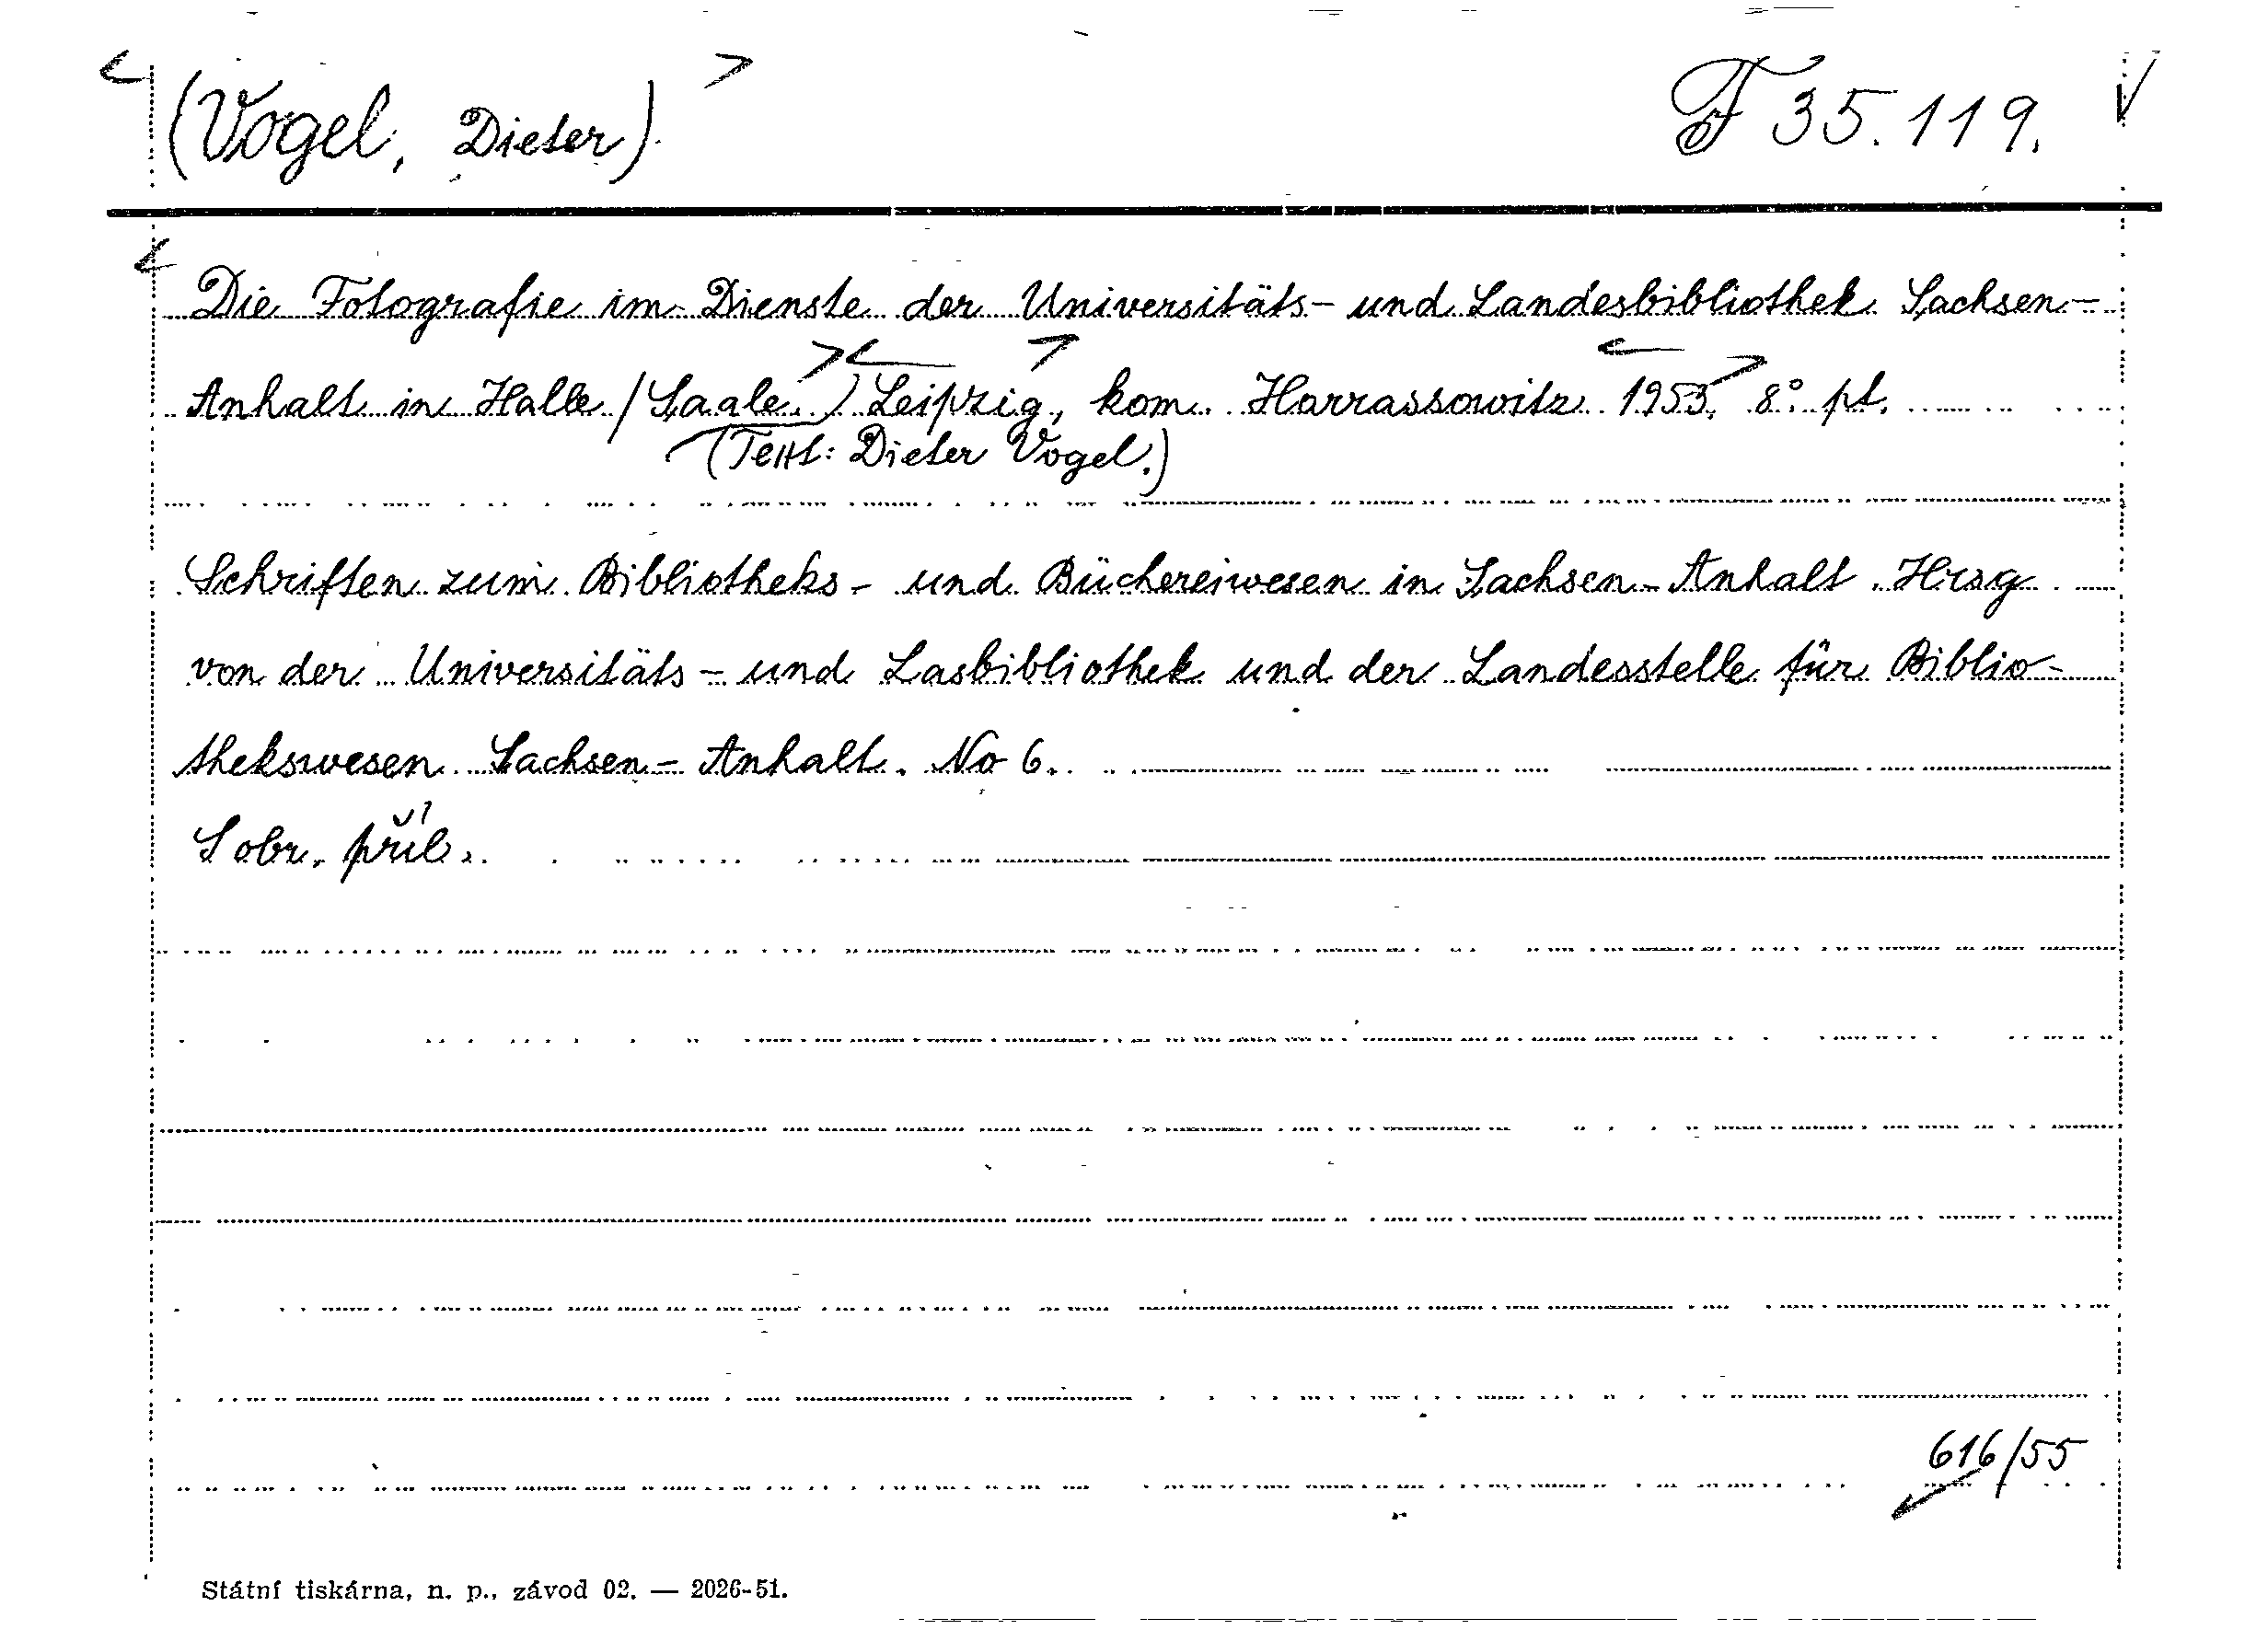 (Vogel, Dieter)
F 35.119.
Die Fotografie im Dienste der Universitäts- und Landesbibliothek Sachsen-
Anhalt in Halle /Saale.) Leipzig, kom. Harrassowitz 1953. 8° pt.
(Text: Dieter Vogel.)
Schriften zum Bibliotheks- und Büchereiwesen in Sachsen-Anhalt. Hrsg
von der Universitäts- und Lasbibliothek und der Landesstelle für Biblio-
thekswesen Sachsen-Anhalt. No 6.
S obr. příl.
616/55
Státní tiskárna, n. p., závod 02. — 2026-51.